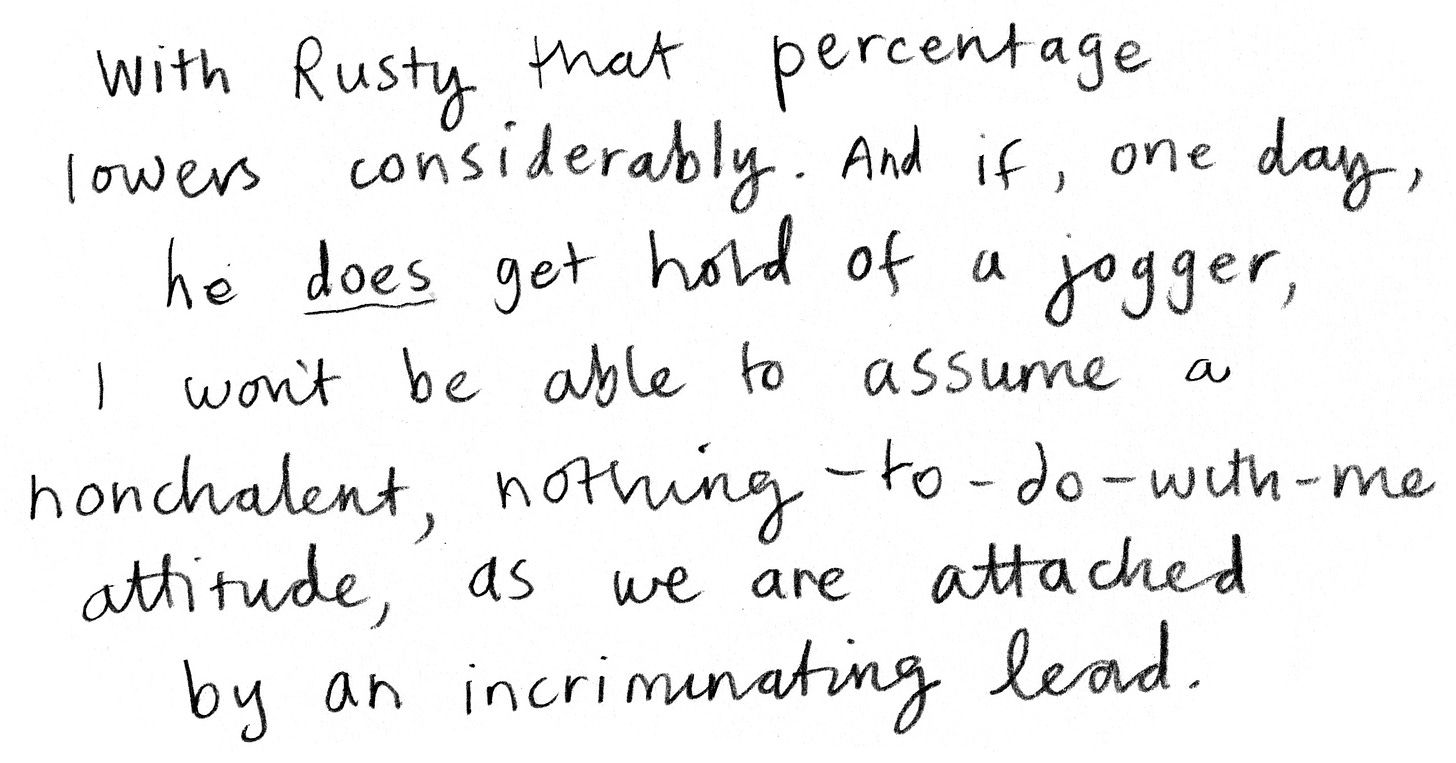 With Rusty that percentage
lowers considerably. And if, one day,
he does get hold of a jogger,
I won't be able to assume a
nonchalent, nothing-to-do-with-me
attitude, as we are attached
by an incriminating lead.